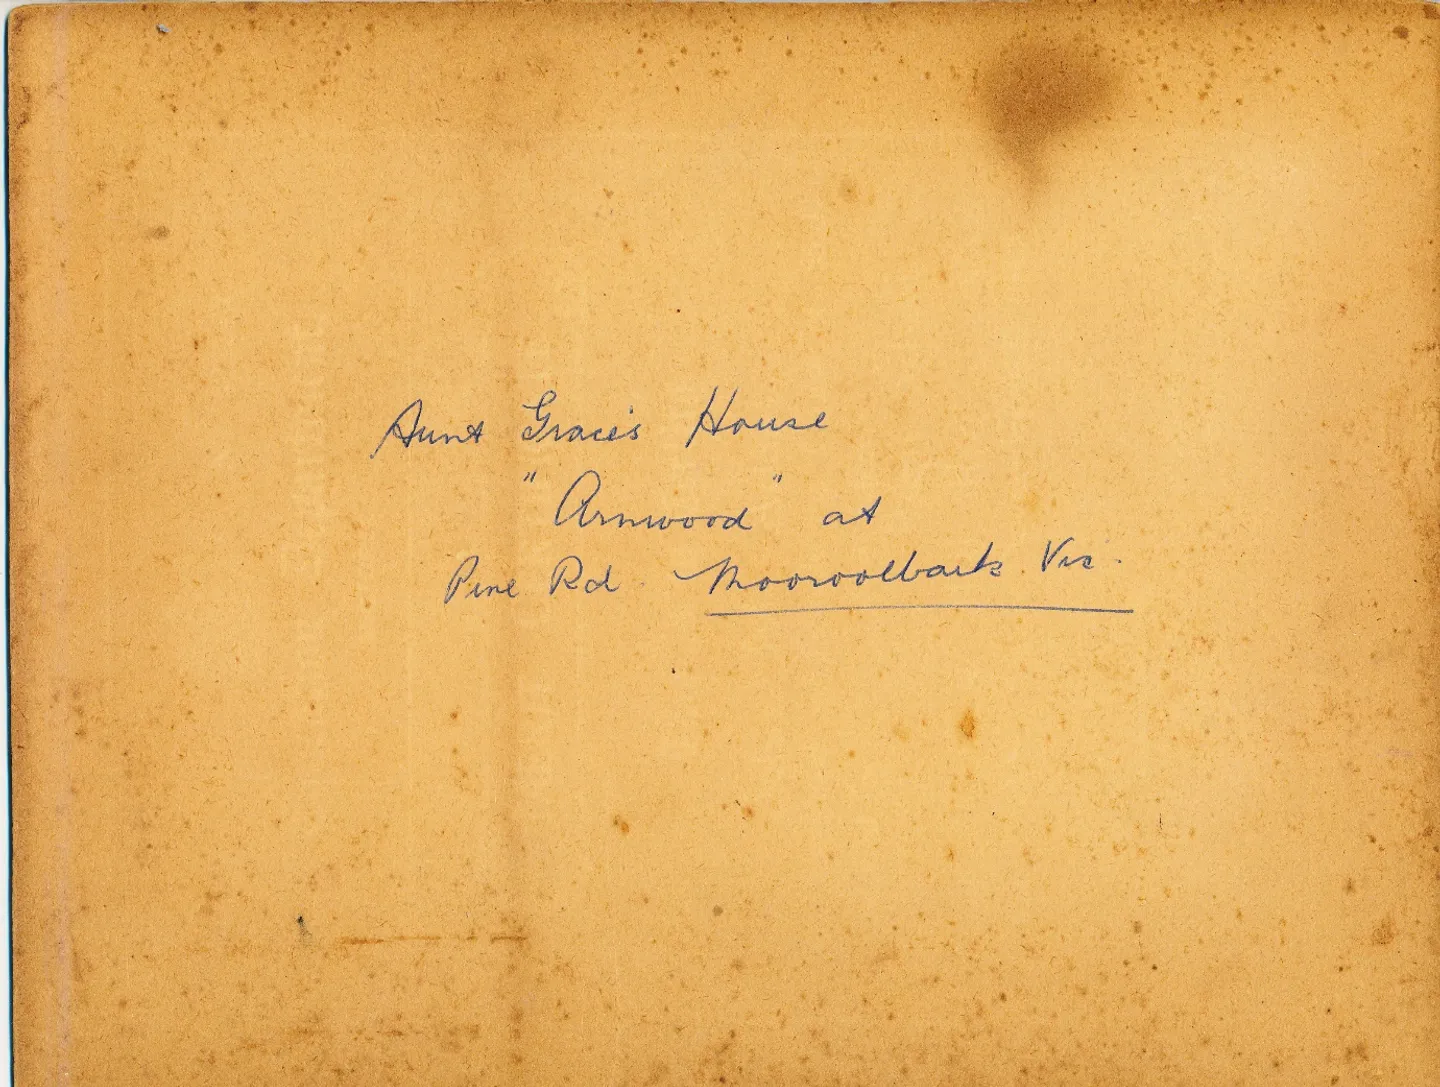 Aunt Grace's House
"Arnwood" at
Pine Rd. Mooroolbark Vic.